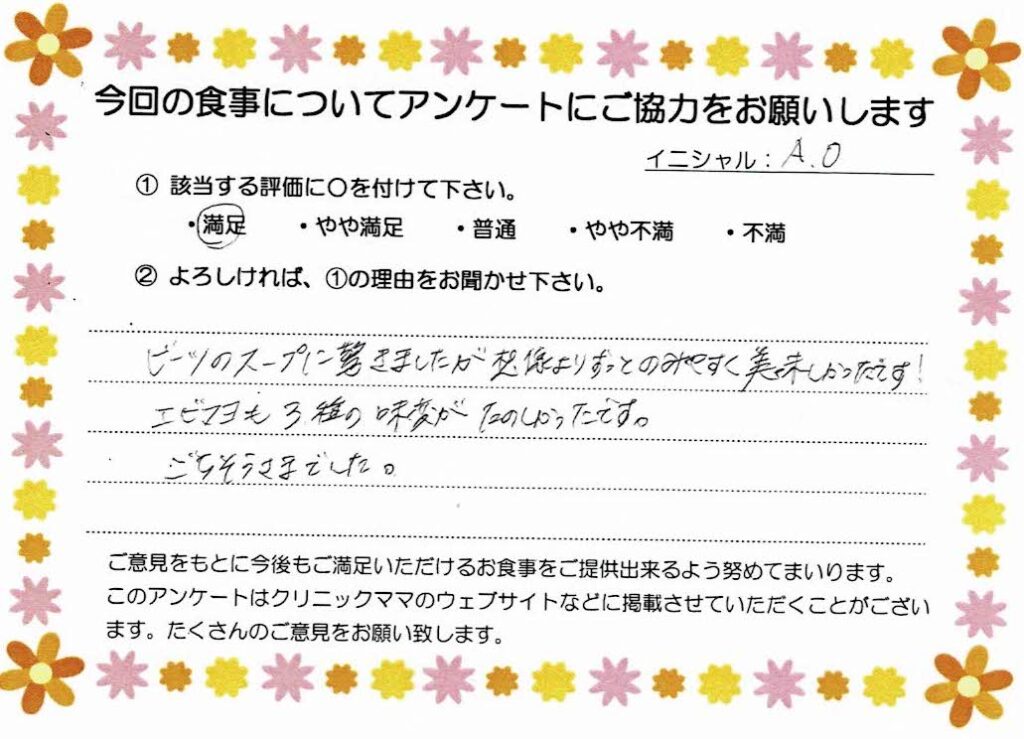 今回の食事についてアンケートにご協力をお願いします
イニシャル：A.O
① 該当する評価に〇を付けて下さい。
・満足 ・やや満足 ・普通 ・やや不満 ・不満
② よろしければ、①の理由をお聞かせ下さい。
ビーツのスープに驚きましたが想像よりずっとのみやすく美味しかったです!
エビマヨも3種の味変がたのしかったです。
ごちそうさまでした。
ご意見をもとに今後もご満足いただけるお食事をご提供出来るよう努めてまいります。
このアンケートはクリニックママのウェブサイトなどに掲載させていただくことがござい
ます。たくさんのご意見をお願い致します。